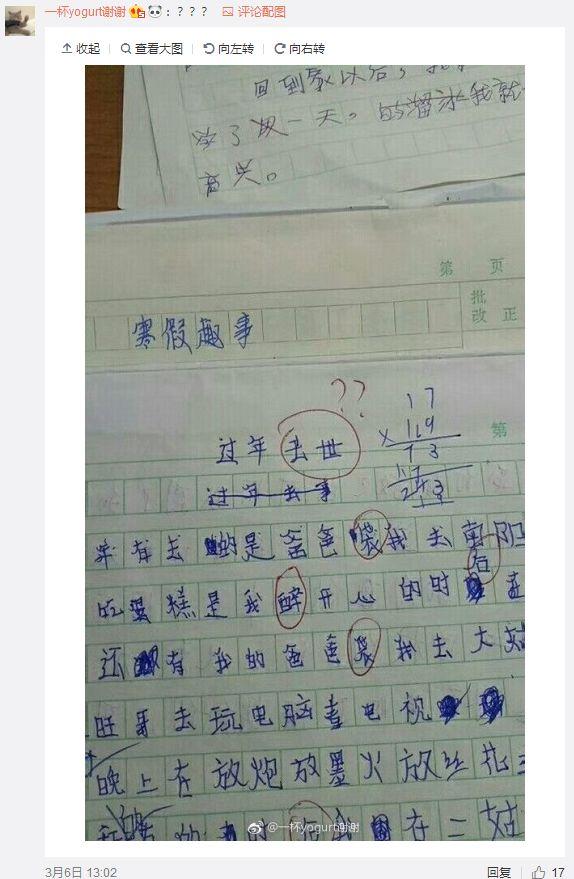 一杯yogurt谢谢：？？？ 评论配图
收起 查看大图 向左转 向右转
回到家以后，
了 一天。的溜冰我就
高兴。
第 页
批
改 正
寒假趣事
??
17
过年去世
×119
第
73
17
过年去事
243
有去 的是爸爸袋我去 阳
后
吃蛋糕是我醉开心的时
还有我的爸爸袋我去大姑
旺哥去玩电脑看电视
晚上在放炮放墨火放丝花
在二姑
@一杯yogurt谢谢
3月6日 13:02 回复 17